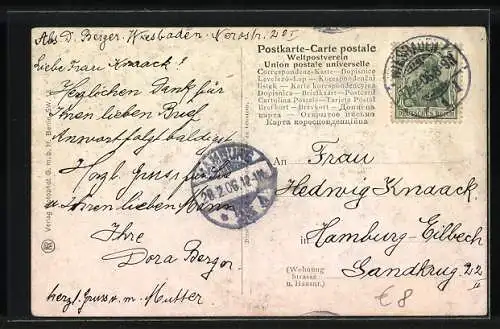 Abs. D. Berger. Wiesbaden. Nerostr. 20 I
Liebe Frau Knaack!
Herzlichen Dank für
Ihren lieben Brief
Antwort folgt baldigst
Herzl. Gruss
u. Ihren lieben Mann
Ihre
Dora Berger
herzl. Gruss v. m. Mutter
Postkarte-Carte postale
Weltpostverein
Union postale universelle
Correspondenz-Karte - Dopisnice
Levelező-Lap - Korespondenční
lístek - Karta korespondencyjna
Dopisnica - Briefkaart - Postkarte
Cartolina Postale - Tarjeta Postal
Brefkort - Brevkort - Дописна
карта - Открытое письмо
Карта корреспонденційна
WIESBADEN
HAMBURG
2.06.12-1N.
An
Frau
Hedwig Knaack
in Hamburg-Eilbeck
(Wohnung
Strasse
u. Hausnr.)
Landkrug 22
II
€ 8